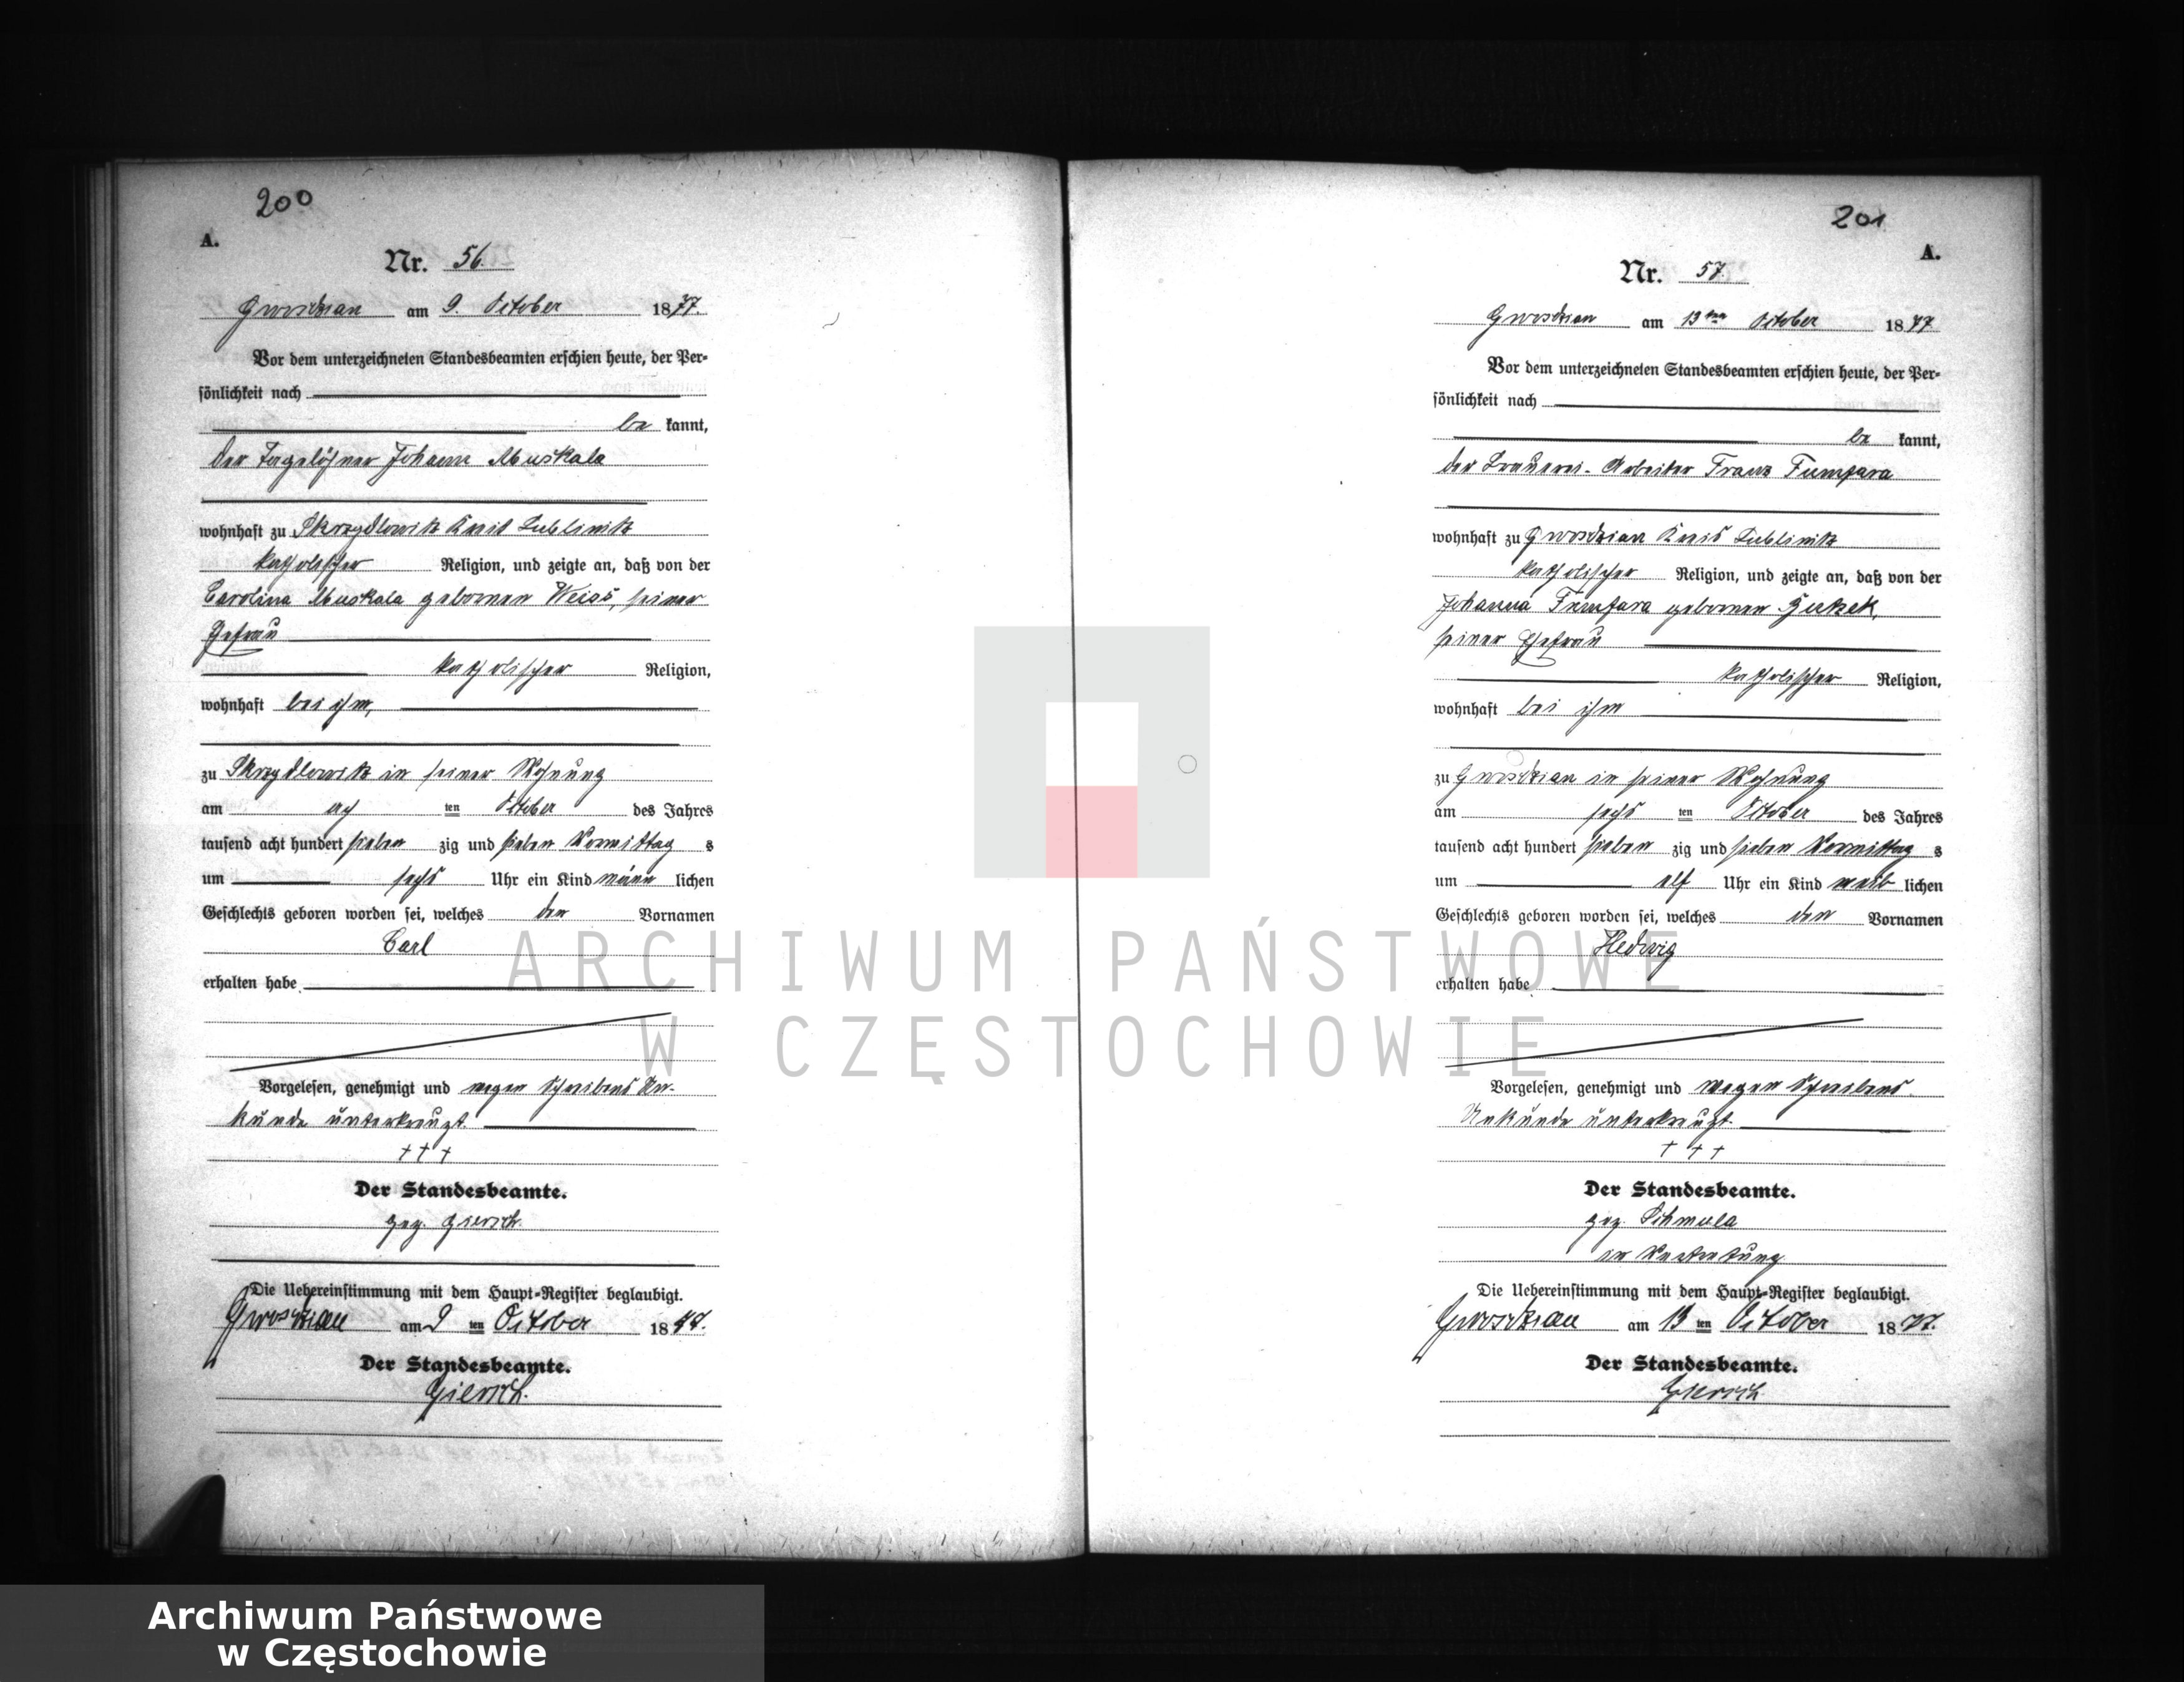 200
A.
Nr. 56.
Gwosdzian am 9. October 1877.
Vor dem unterzeichneten Standesbeamten erschien heute, der Per-
sönlichkeit nach
be kannt,
der Tagelöhner Johann Muskala
wohnhaft zu Skrzydlowitz Kreis Lublinitz
katholischer Religion, und zeigte an, daß von der
Carolina Muskala geborenen Weiss, seiner
Ehefrau
katholischer Religion,
wohnhaft bei ihm,
zu Skrzydlowitz in seiner Wohnung
am ach ten October des Jahres
tausend acht hundert sieben zig und sieben Vormittag s
um sechs Uhr ein Kind männ lichen
Geschlechts geboren worden sei, welches den Vornamen
Carl
erhalten habe
Vorgelesen, genehmigt und wegen Schreibens Un-
kunde unterkreuzt.
+ + +
Der Standesbeamte.
gez. Giersch.
Die Uebereinstimmung mit dem Haupt-Register beglaubigt.
Gwosdzian am 9 ten October 1877.
Der Standesbeamte.
Giersch.
201
A.
Nr. 57.
Gwosdzian am 13ten October 1877
Vor dem unterzeichneten Standesbeamten erschien heute, der Per-
sönlichkeit nach
be kannt,
der Brauerei-Arbeiter Franz Fumfara
wohnhaft zu Gwosdzian Kreis Lublinitz
katholischer Religion, und zeigte an, daß von der
Johanna Fumfara geborenen
seiner Ehefrau
katholischer Religion,
wohnhaft bei ihm
zu Gwosdzian in seiner Wohnung
am sechs ten October des Jahres
tausend acht hundert sieben zig und sieben Vormittag s
um elf Uhr ein Kind weib lichen
Geschlechts geboren worden sei, welches den Vornamen
Hedwig
erhalten habe
Vorgelesen, genehmigt und wegen Schreibens
Unkunde unterkreuzt.
+ + +
Der Standesbeamte.
gez. Schmula
in Vertretung
Die Uebereinstimmung mit dem Haupt-Register beglaubigt.
Gwosdzian am 13 ten October 1877.
Der Standesbeamte.
Giersch
ARCHIWUM PAŃSTWOWE
W CZĘSTOCHOWIE
Archiwum Państwowe
w Częstochowie